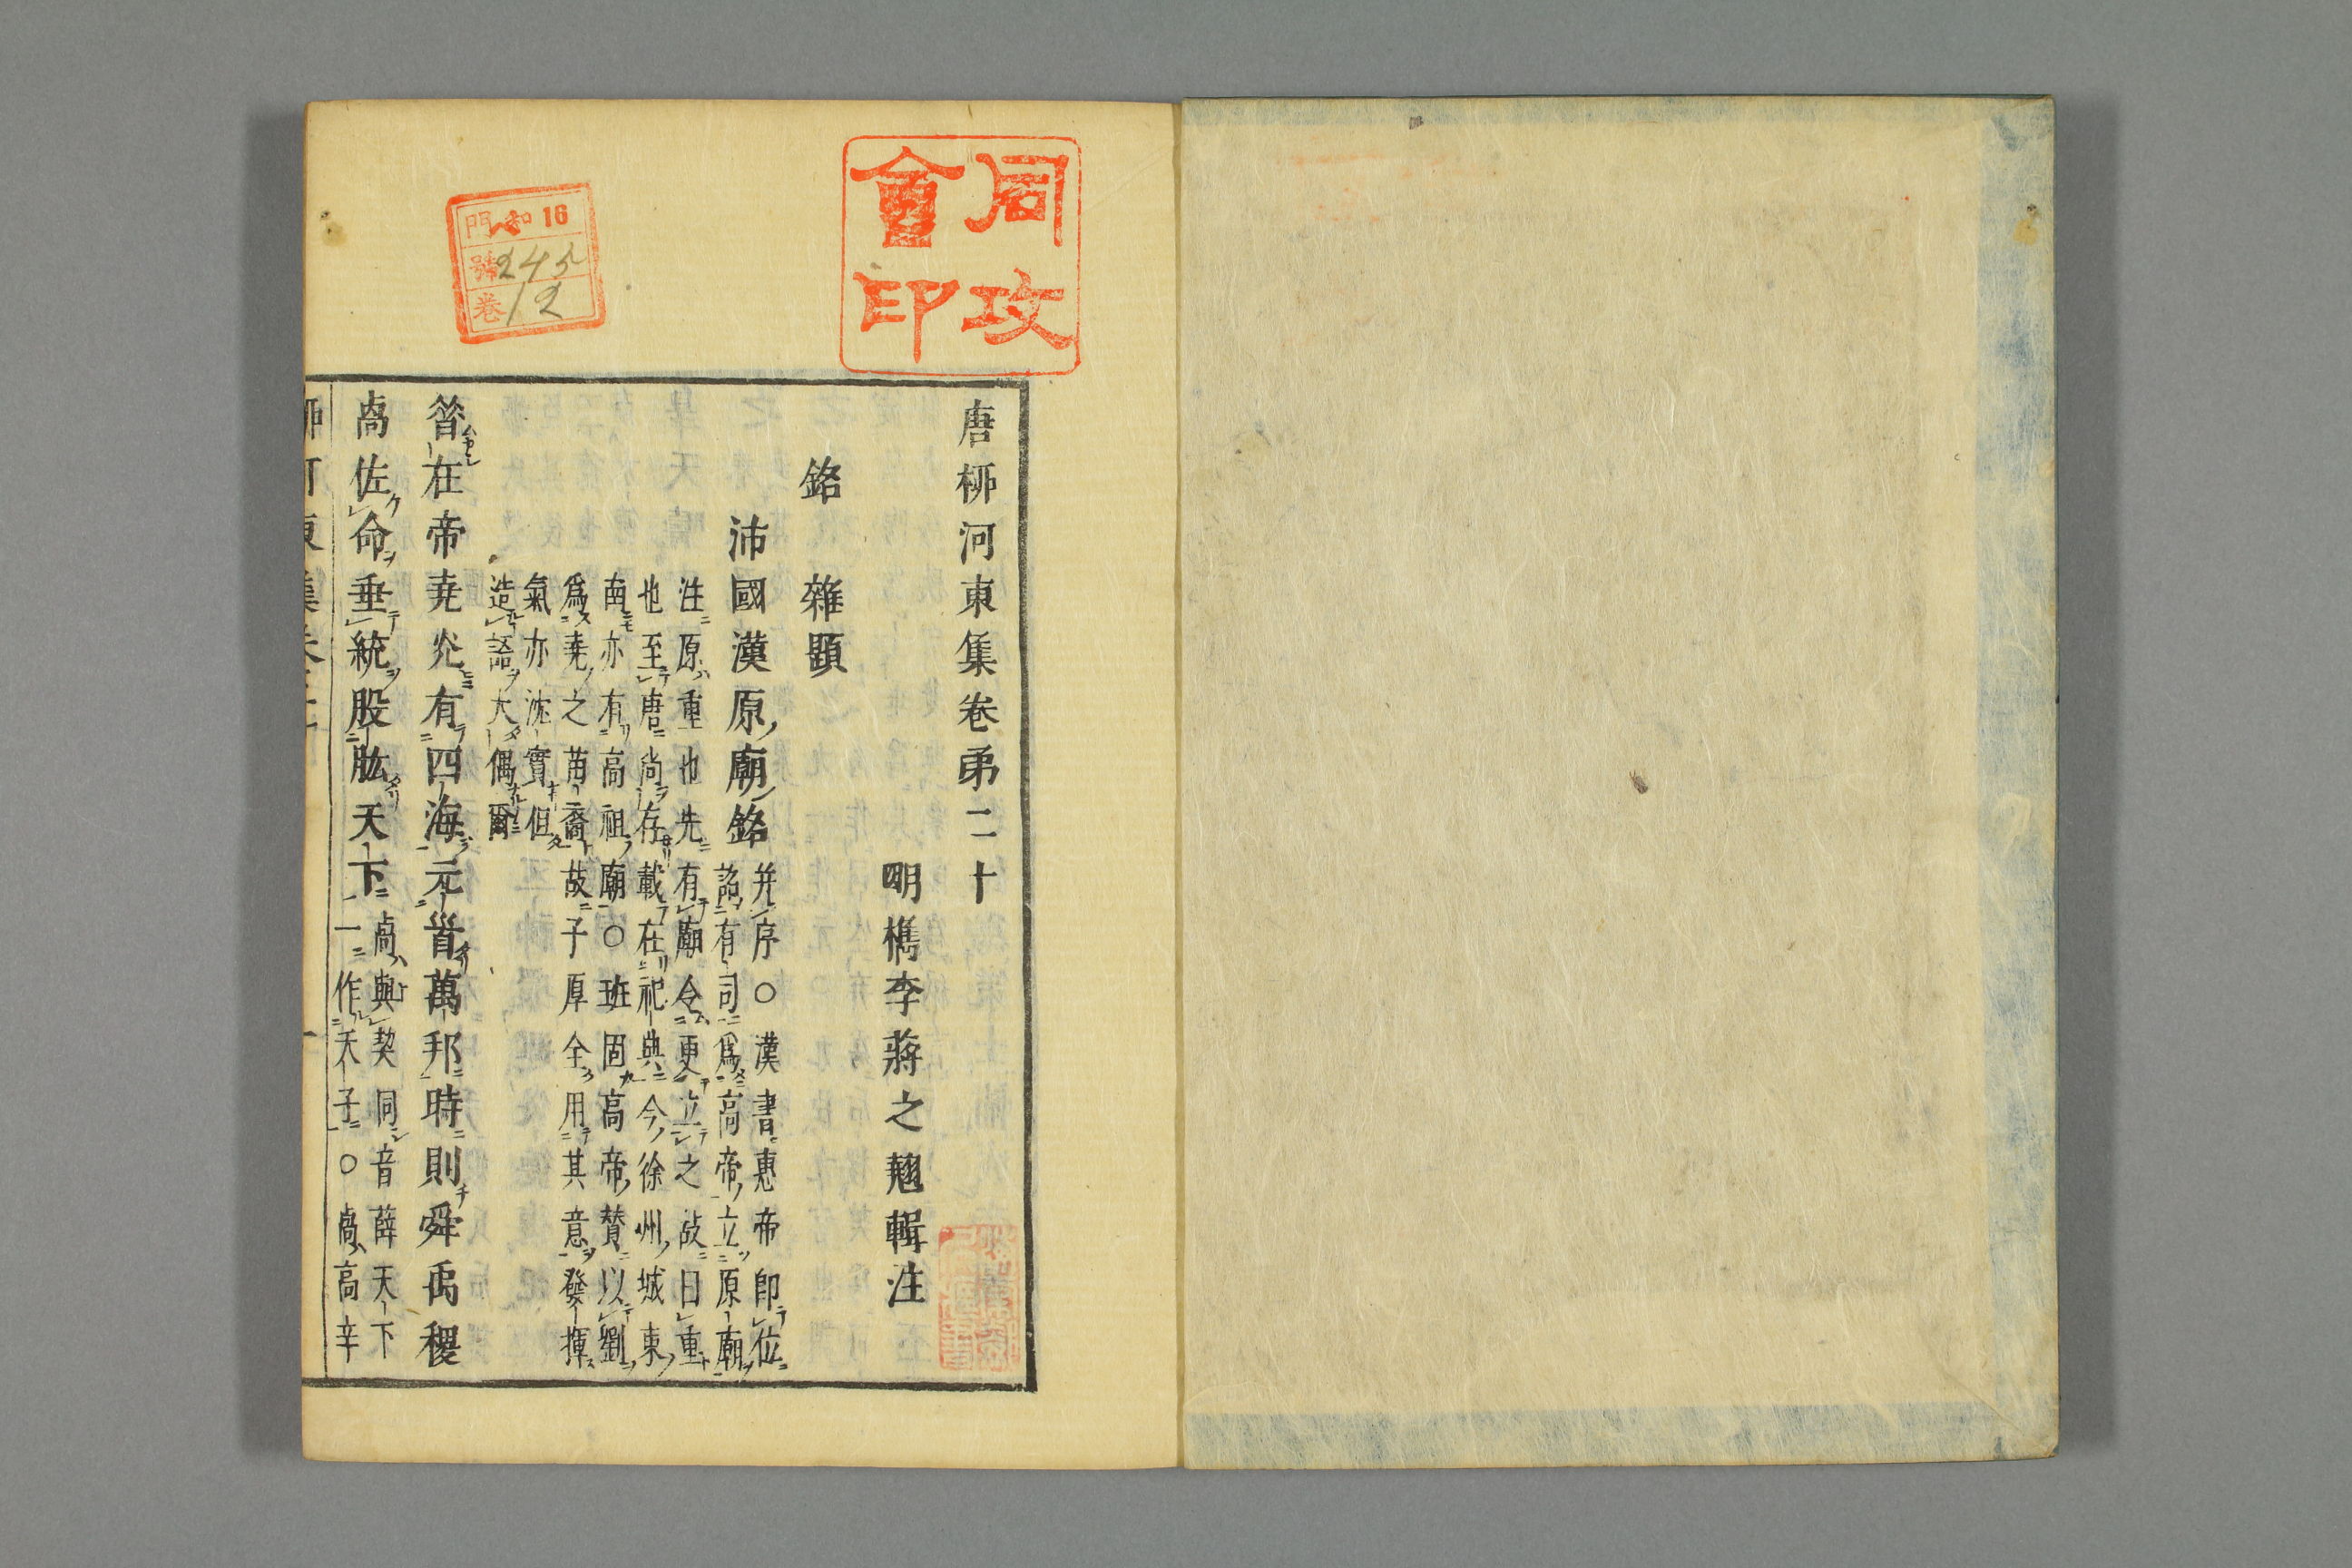 同攻
會印
門 和16
號 245
卷 12
唐柳河東集卷苐二十
明檇李蔣之翹輯注
銘 雜題
沛國漢原廟銘
并序○漢書惠帝即位
詔有司爲高帝立原廟
注原重也先有廟令更立之故曰重
也至唐尚存載在祀典今徐州城東
南亦有高祖廟○班固高帝贊以劉
爲堯之苗裔故子厚全用其意發揮
氣亦沈實但
造語大偶爾
昝在帝堯光有四海元首萬邦時則舜禹稷
卨佐命垂統股肱天下
卨與契同音薛天下
一作天子○卨高辛
柳河東集卷二十 一